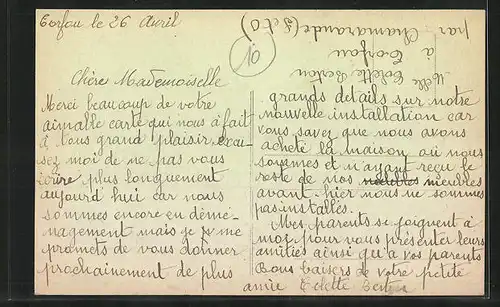 Torfou le 26 Avril
Chère Mademoiselle
Merci beaucoup de votre
aimable carte qui nous a fait
à tous grand plaisir, excu-
sez moi de ne pas vous
écrire plus longuement
aujourd'hui car nous
sommes encore en démé-
nagement mais je me
promets de vous donner
prochainement de plus
grands détails sur notre
nouvelle installation car
vous savez que nous avons
acheté la maison où nous
sommes et n'ayant reçu le
reste de nos meubles
avant-hier nous ne sommes
pas installés.
Mes parents se joignent à
moi pour vous présenter leurs
amitiés ainsi qu'à vos parents
Bons baisers de votre petite
amie Colette
Melle Colette
à Torfou
par Chamarande (S et O)
10